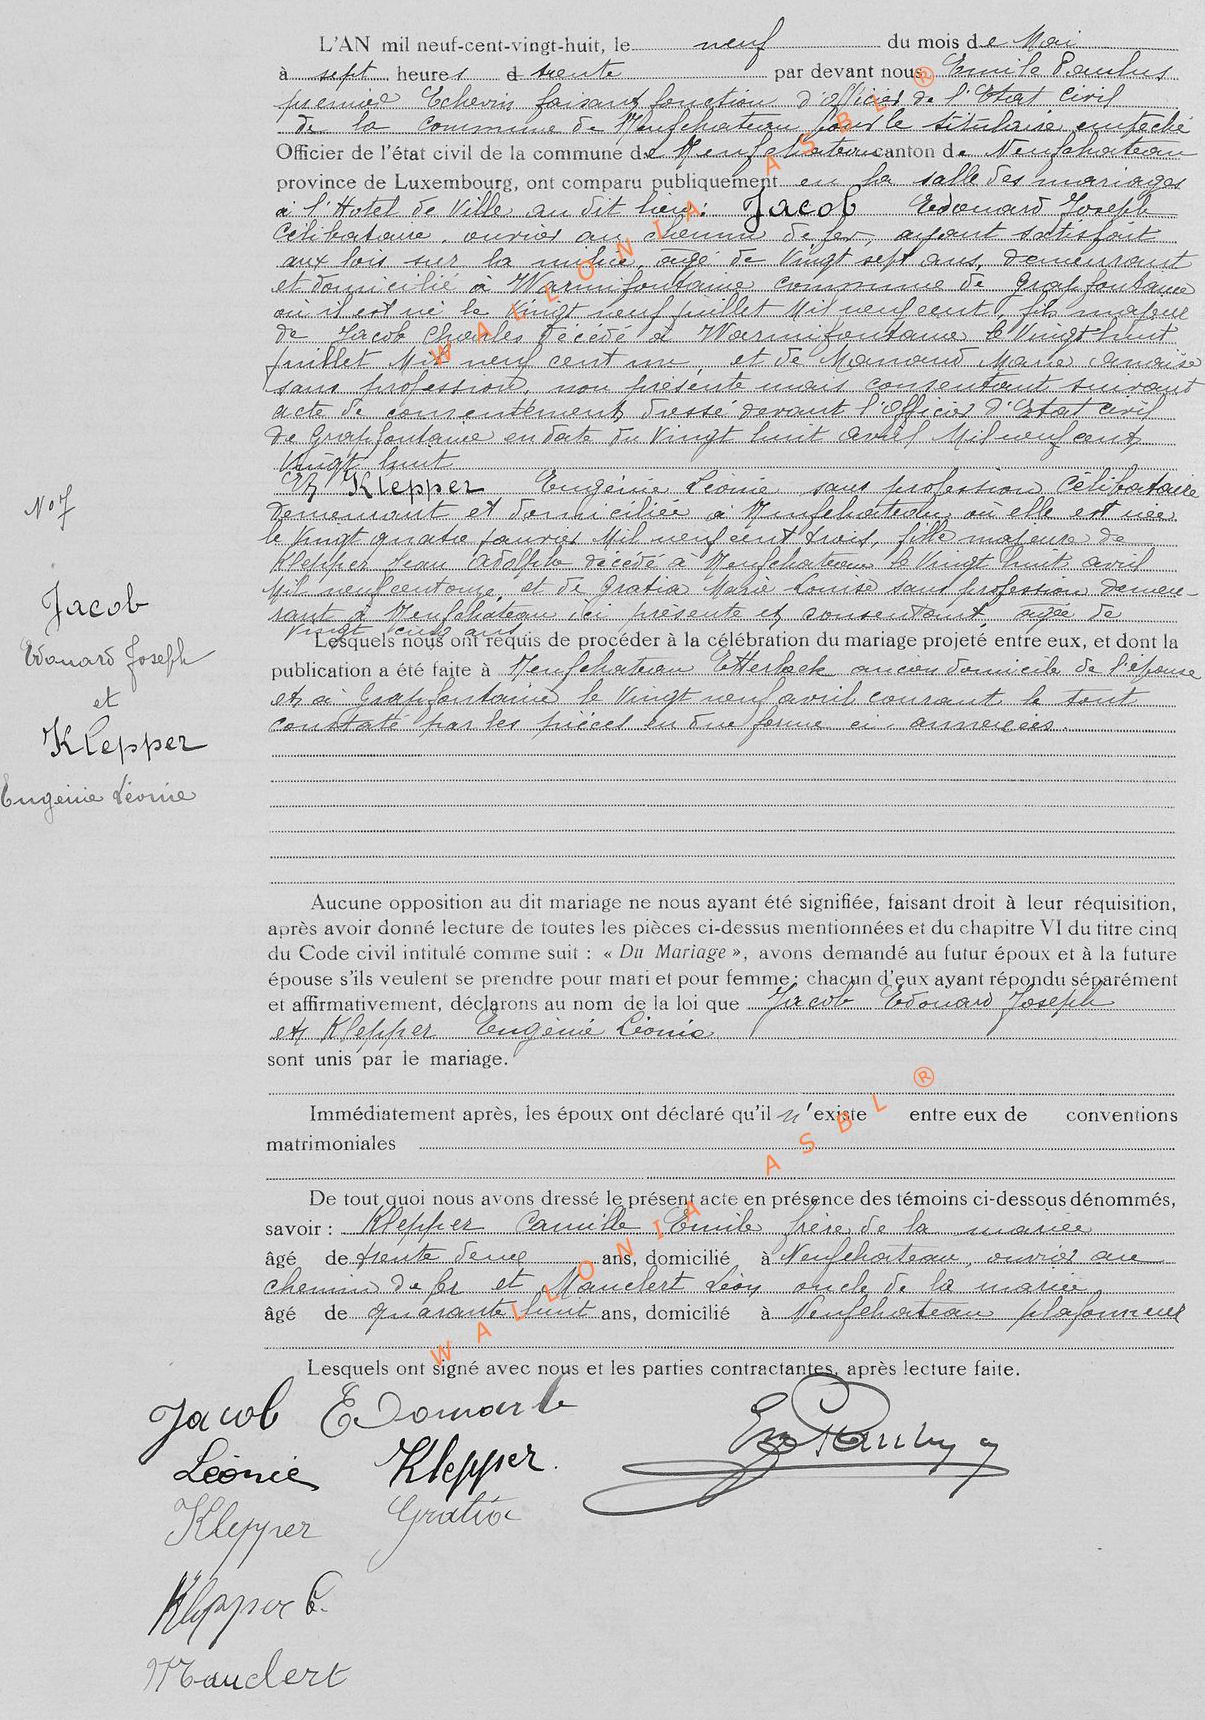 L'AN mil neuf-cent-vingt-huit, le neuf du mois de Mai
à sept heures et trente par devant nous Emile Paulus
premier Echevin faisant fonction d'Officier de l'Etat Civil
de la commune de Neufchateau pour le titulaire empêché
Officier de l'état civil de la commune de Neufchateau canton de Neufchateau
province de Luxembourg, ont comparu publiquement en la salle des mariages
à l'Hotel de Ville au dit lieu: Jacob Edouard Joseph
Célibataire, ouvrier au chemin de fer, ayant satisfait
aux lois sur la milice, âgé de Vingt sept ans, demeurant
et domicilié à Warmifontaine commune de Grapfontaine
où il est né le Vingt neuf juillet Mil neuf cent, fils majeur
de Jacob Charles décédé à Warmifontaine le Vingt huit
juillet Mil neuf cent un, et de Manand Marie Anaïse
sans profession, non présente mais consentant suivant
acte de consentement dressé devant l'Officier d'Etat Civil
de Grapfontaine en date du Vingt huit avril Mil neuf cent
Vingt huit
Et Klepper Eugénie Léonie sans profession Célibataire
demeurant et domiciliée à Neufchateau où elle est née
le Vingt quatre janvier Mil neuf cent trois, fille majeure de
Klepper Jean Adolphe décédé à Neufchateau le Vingt huit avril
Mil neuf cent onze, et de Gratia Marie Louise sans profession demeu-
rant à Neufchateau ici présente et consentant, agée de
Vingt cinq ans
Lesquels nous ont requis de procéder à la célébration du mariage projeté entre eux, et dont la
publication a été faite à Neufchateau Etterbeek ancien domicile de l'épouse
et à Grapfontaine le Vingt neuf avril courant le tout
constaté par les pièces en due forme ci-annexées.
No 7
Jacob
Edouard Joseph
et
Klepper
Eugénie Léonie
Aucune opposition au dit mariage ne nous ayant été signifiée, faisant droit à leur réquisition,
après avoir donné lecture de toutes les pièces ci-dessus mentionnées et du chapitre VI du titre cinq
du Code civil intitulé comme suit : « Du Mariage », avons demandé au futur époux et à la future
épouse s'ils veulent se prendre pour mari et pour femme; chacun d'eux ayant répondu séparément
et affirmativement, déclarons au nom de la loi que Jacob Edouard Joseph
et Klepper Eugénie Léonie
sont unis par le mariage.
Immédiatement après, les époux ont déclaré qu'il n'existe entre eux de conventions
matrimoniales
De tout quoi nous avons dressé le présent acte en présence des témoins ci-dessous dénommés,
savoir : Klepper Camille Emile frère de la mariée
âgé de trente deux ans, domicilié à Neufchateau, ouvrier au
chemin de fer et Mauclert Léon oncle de la mariée
âgé de quarante huit ans, domicilié à Neufchateau plafonneur
Lesquels ont signé avec nous et les parties contractantes, après lecture faite.
Jacob Edouard
Léonie Klepper.
Em Paulus
Klepper Gratia
Klepper C.
Mauclert
WALLONIA ASBL ®
WALLONIA ASBL ®